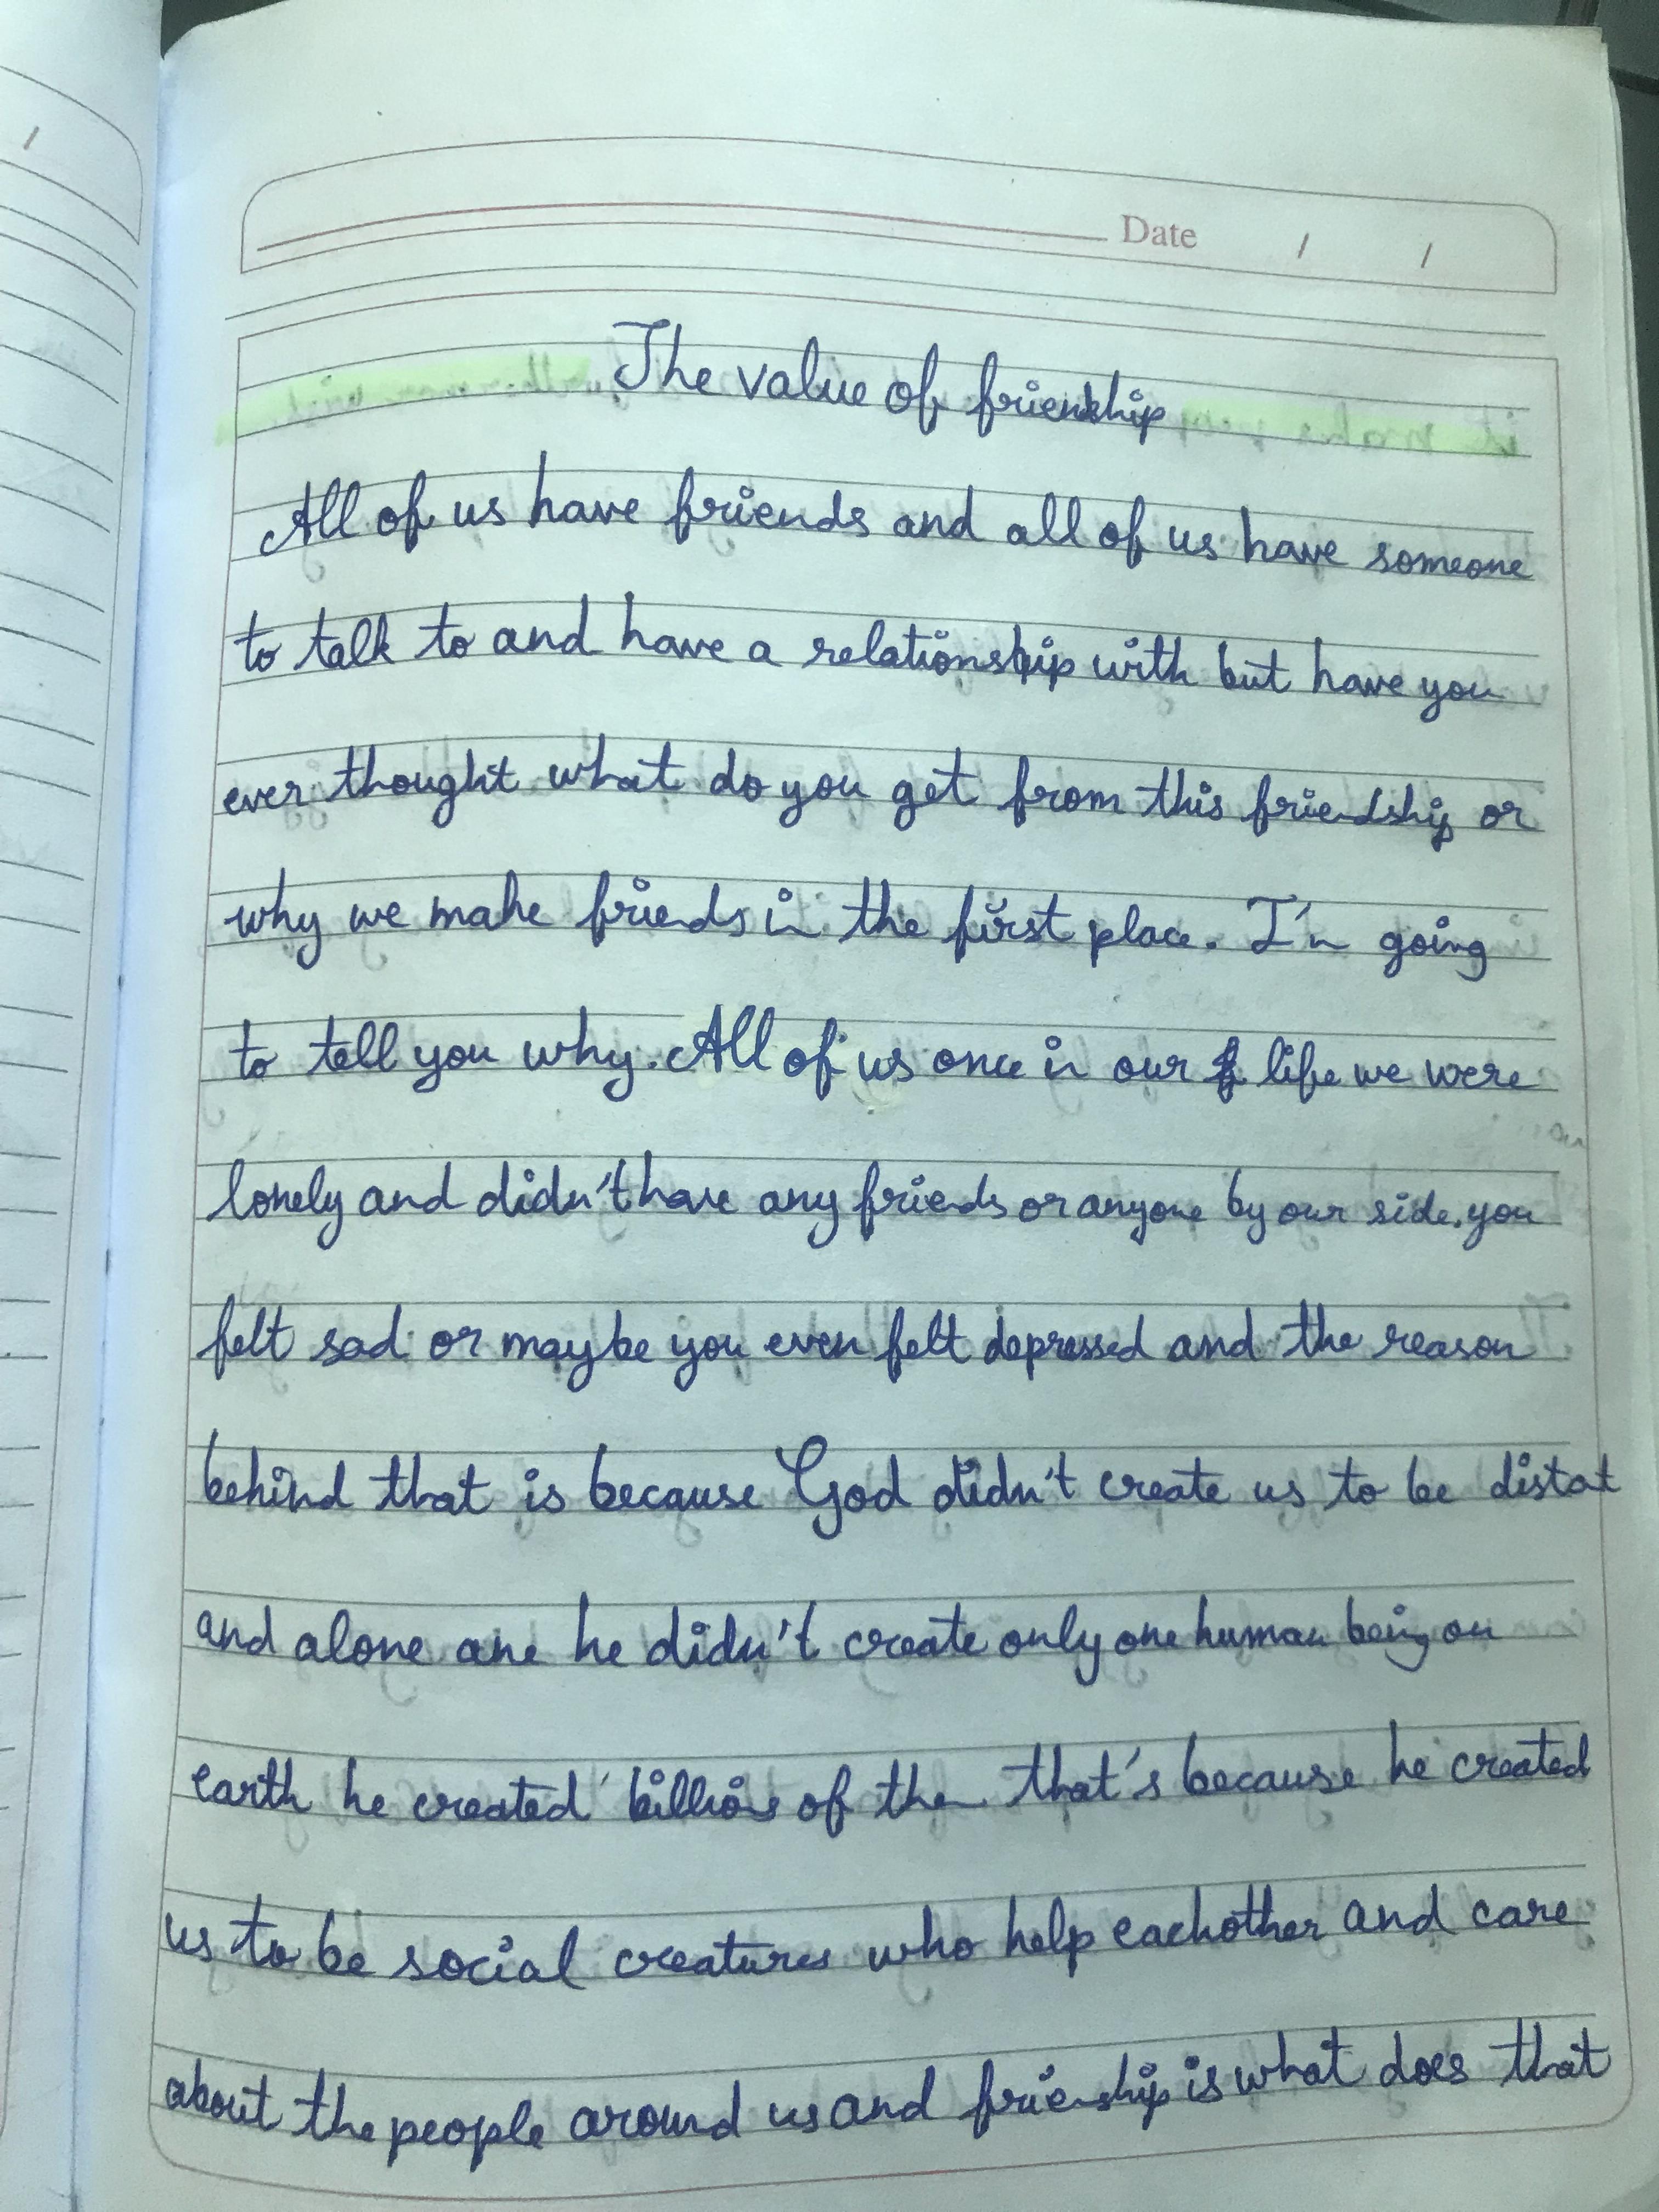 Date / /
The value of friendship
All of us have friends and all of us have someone
to talk to and have a relationship with but have you
ever thought what do you get from this friendship or
why we make friends in the first place. I'm going
to tell you why. All of us once in our life we were
lonely and didn't have any friends or anyone by our side, you
felt sad or maybe you even felt depressed and the reason
behind that is because God didn't create us to be distat
and alone ane he didn't create only one human being on
earth he created billions of them that's because he created
us to be social creatures who help eachother and care
about the people around us and frienship is what does that